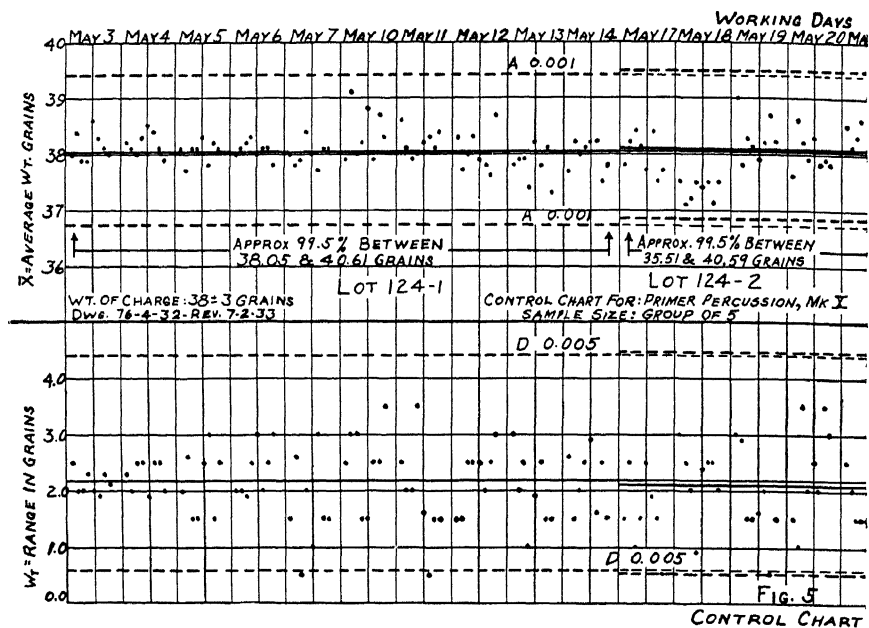 WORKING DAYS
MAY 3 MAY 4 MAY 5 MAY 6 MAY 7 MAY 10 MAY 11 MAY 12 MAY 13 MAY 14 MAY 17 MAY 18 MAY 19 MAY 20 MA
40
A 0.001
39
38
37
36
X̄=AVERAGE WT. GRAINS
A 0.001
APPROX 99.5% BETWEEN
38.05 & 40.61 GRAINS
APPROX. 99.5% BETWEEN
35.51 & 40.59 GRAINS
LOT 124-1
LOT 124-2
WT. OF CHARGE: 38±3 GRAINS
DWG. 76-4-32-REV. 7-2-33
CONTROL CHART FOR: PRIMER PERCUSSION, MK V
SAMPLE SIZE: GROUP OF 5
D 0.005
4.0
3.0
2.0
1.0
0.0
WT=RANGE IN GRAINS
D 0.005
FIG. 5
CONTROL CHART